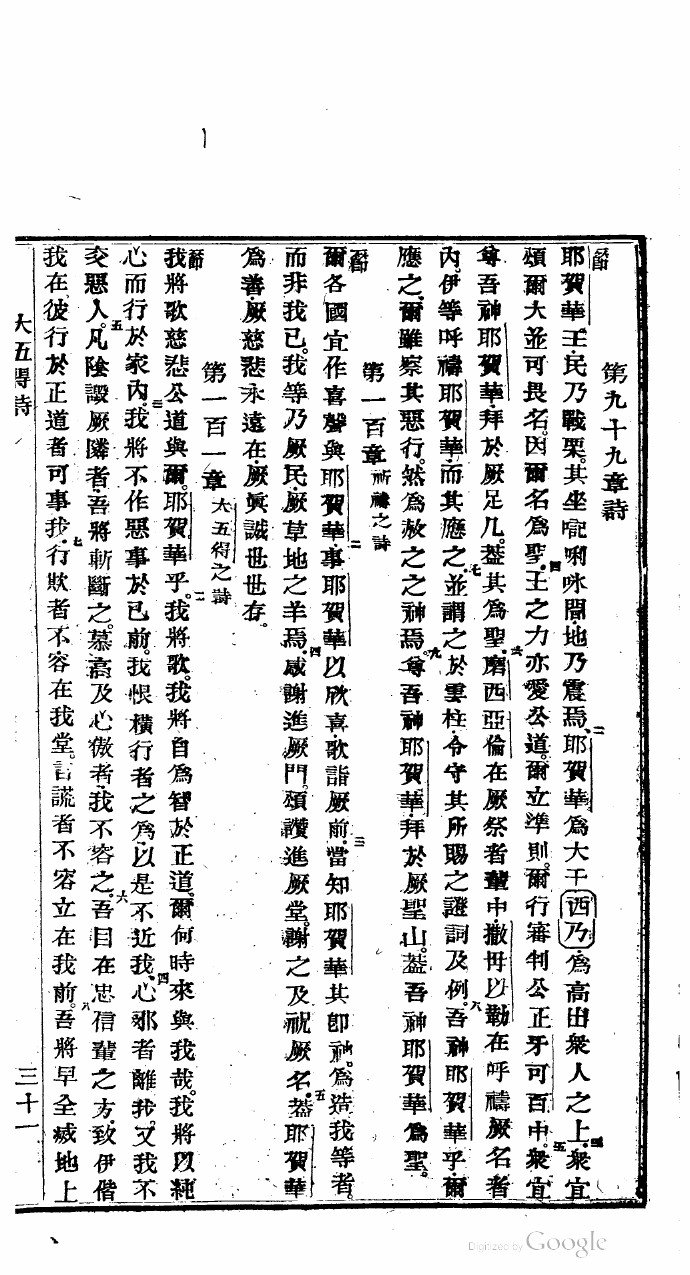 第九十九章詩
一節耶賀華王民乃戰栗。其坐𠿝唎咏間地乃震焉。二耶賀華為大于西乃為高出衆人之上。三衆宜
頌爾大並可畏名。因爾名為聖。四王之力亦愛公道。爾立準則。爾行審判公正牙可百中。五衆宜
尊吾神耶賀華。拜於厥足几。葢其為聖。六磨西亞倫在厥祭者輩中。撒母以勒在呼禱厥名者
內。伊等呼禱耶賀華而其應之。七並謂之於雲柱。令守其所賜之證詞及例。八吾神耶賀華乎。爾
應之。爾雖察其惡行。然為赦之之神焉。九尊吾神耶賀華。拜於厥聖山。葢吾神耶賀華為聖。
第一百章 祈禱之詩
一節爾各國宜作喜聲與耶賀華。二事耶賀華以欣喜。歌詣厥前。三當知耶賀華其即神。為造我等者。
而非我己。我等乃厥民。厥草地之羊焉。四感謝進厥門。頌讚進厥堂。謝之及祝厥名。五葢耶賀華
為善。厥慈悲永遠在。厥真誠世世存。
第一百一章 大五得之詩
一節我將歌慈悲公道與爾。耶賀華乎。我將歌。二我將自為智於正道。爾何時來與我哉。我將以純
心而行於家內。三我將不作惡事於己前。我恨橫行者之為。以是不近我。四心邪者離我。又我不
交惡人。五凡陰譭厥隣者。吾將斬斷之。慕高及心傲者。我不容之。六吾目在忠信輩之方。致伊偕
我在彼行於正道者可事我。七行欺者不容在我堂。言謊者不容立在我前。八吾將早全滅地上
大五得詩
三十一
Digitized by Google